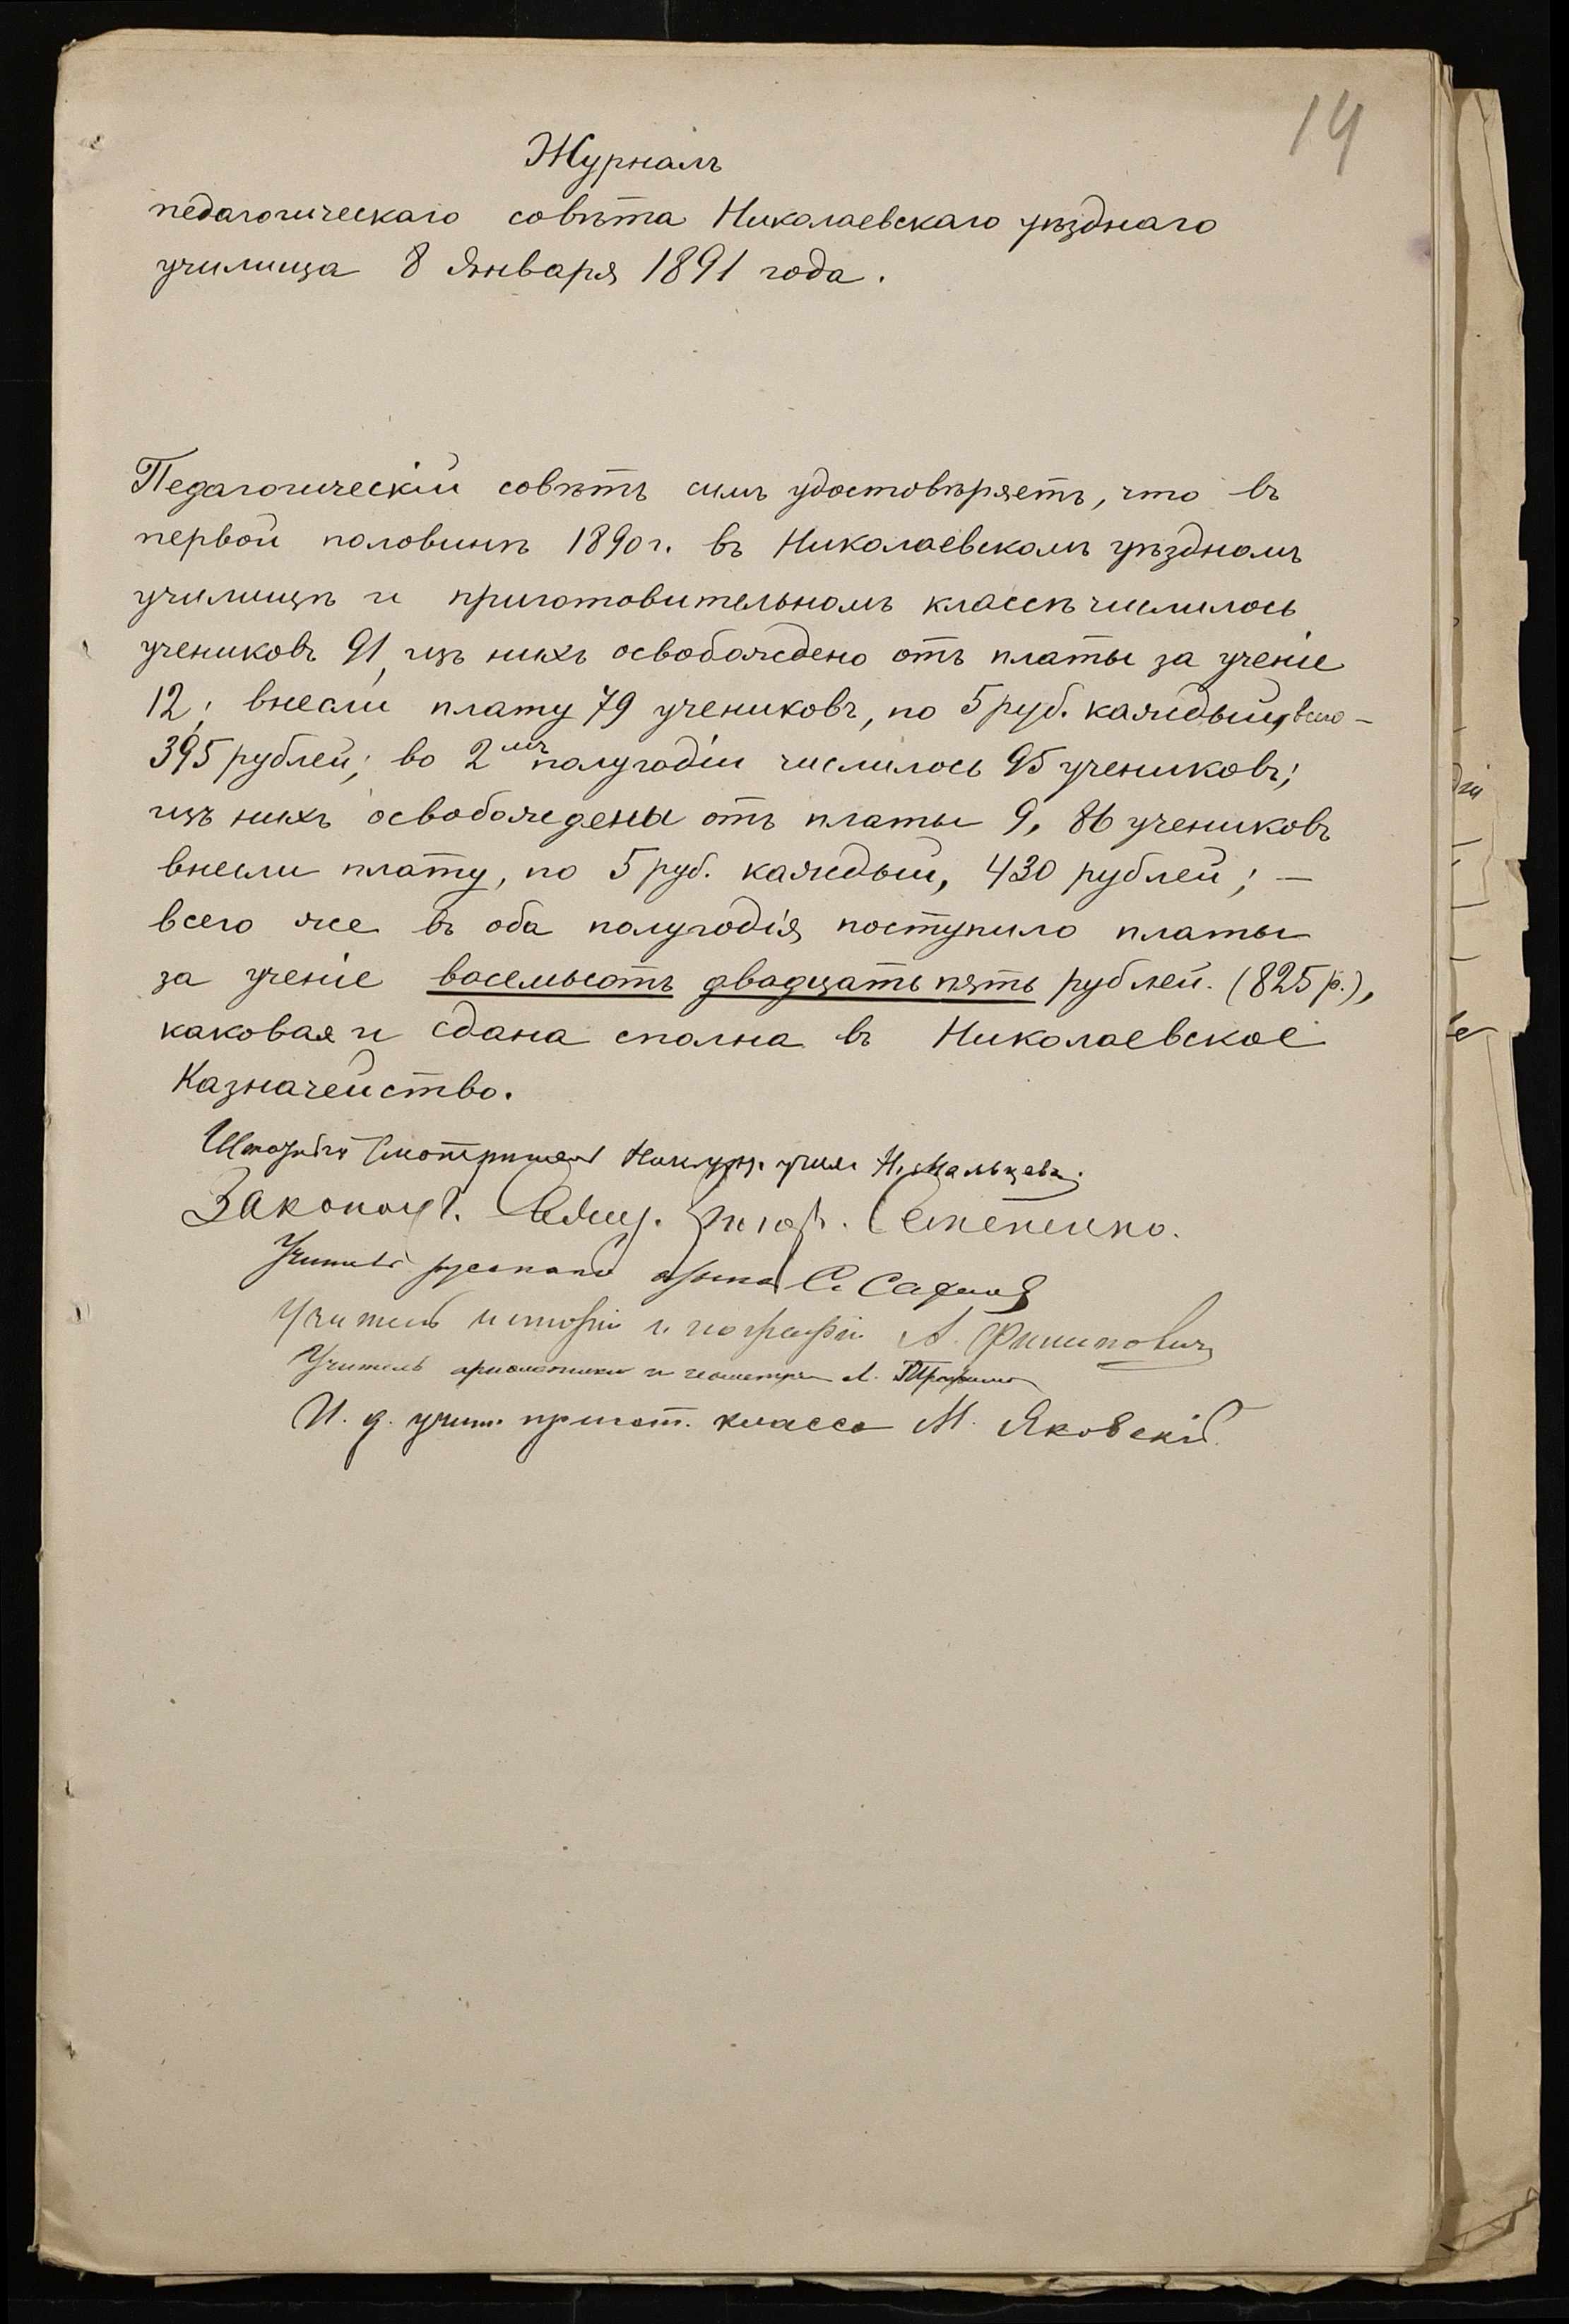 14
Журналъ
педагогическаго совѣта Николаевскаго уѣзднаго
училища 8 Января 1891 года.
Педагогическій совѣтъ симъ удостовѣряетъ, что въ
первой половинѣ 1890 г. въ Николаевскомъ уѣздномъ
училищѣ и приготовительномъ классѣ числилось
учениковъ 91, изъ нихъ освобождено отъ платы за ученіе
12; внесли плату 79 учениковъ, по 5 руб. каждый, всего —
395 рублей; во 2мъ полугодіи числилось 95 учениковъ;
изъ нихъ освобождены отъ платы 9, 86 учениковъ
внесли плату, по 5 руб. каждый, 430 рублей; —
всего же въ оба полугодія поступило платы
за ученіе восемьсотъ двадцать пять рублей. (825 р.),
каковая и сдана сполна въ Николаевское
Казначейство.
Штатный Смотритель Ник. уѣз. учил. Н. Мальцевъ.
Законоуч. Свящ. Стефаненко.
Учитель русскаго языка С.
Учитель исторіи и географіи А. Филиповичъ
Учитель ариѳметики и геометріи
И. д. учит. пригот. класса М. Яковскій.